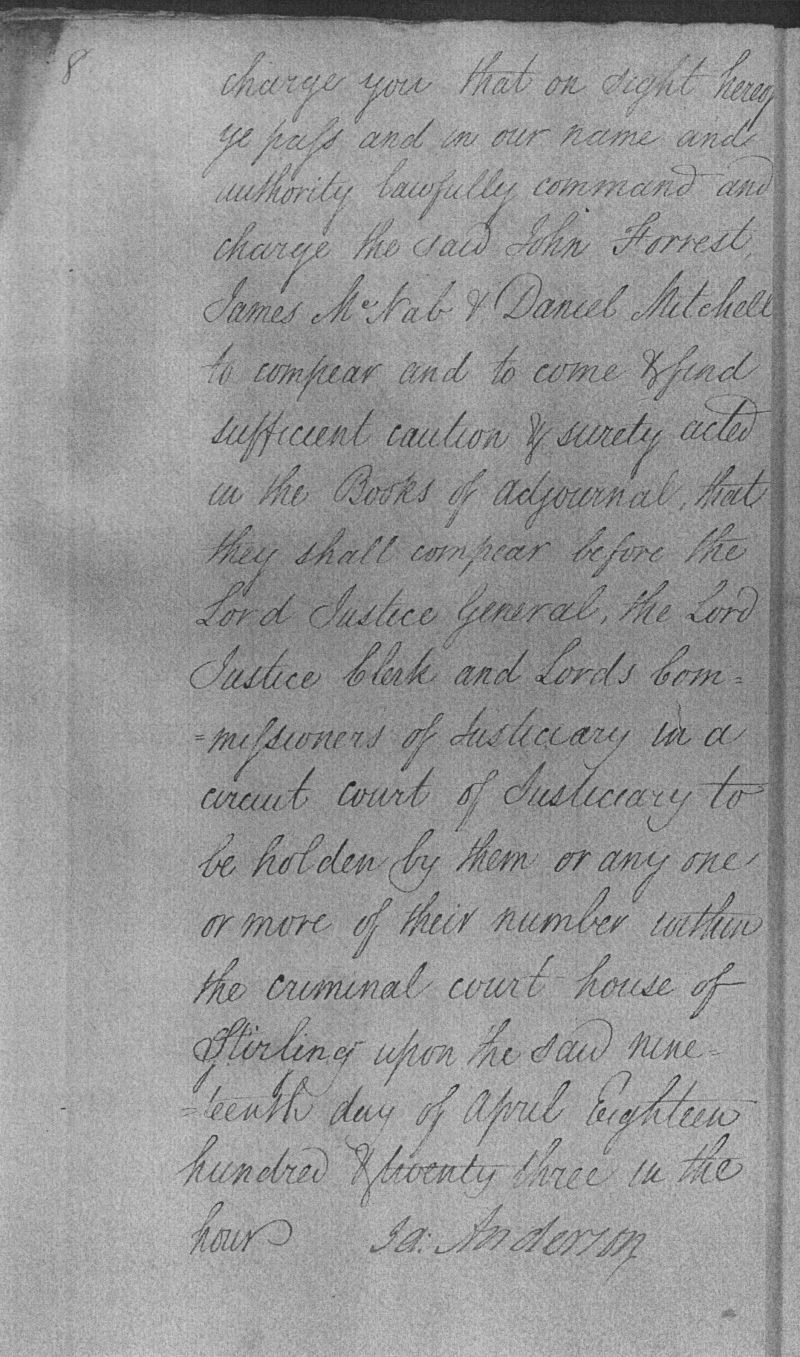 8
charge you that on sight hereof
ye pass and in our name and
authority lawfully command and
charge the said John Forrest,
James McNab & Daniel Mitchell
to compear and to come & find
sufficient caution & surety acted
in the Books of adjournal, that
they shall compear before the
Lord Justice General, the Lord
Justice Clerk and Lords Com=
=missioners of Justiciary in a
circuit court of Justiciary to
be holden by them or any one
or more of their number within
the criminal court house of
Stirling upon the said nine=
=teenth day of April Eighteen
hundred & twenty three in the
hour Ja: Anderson